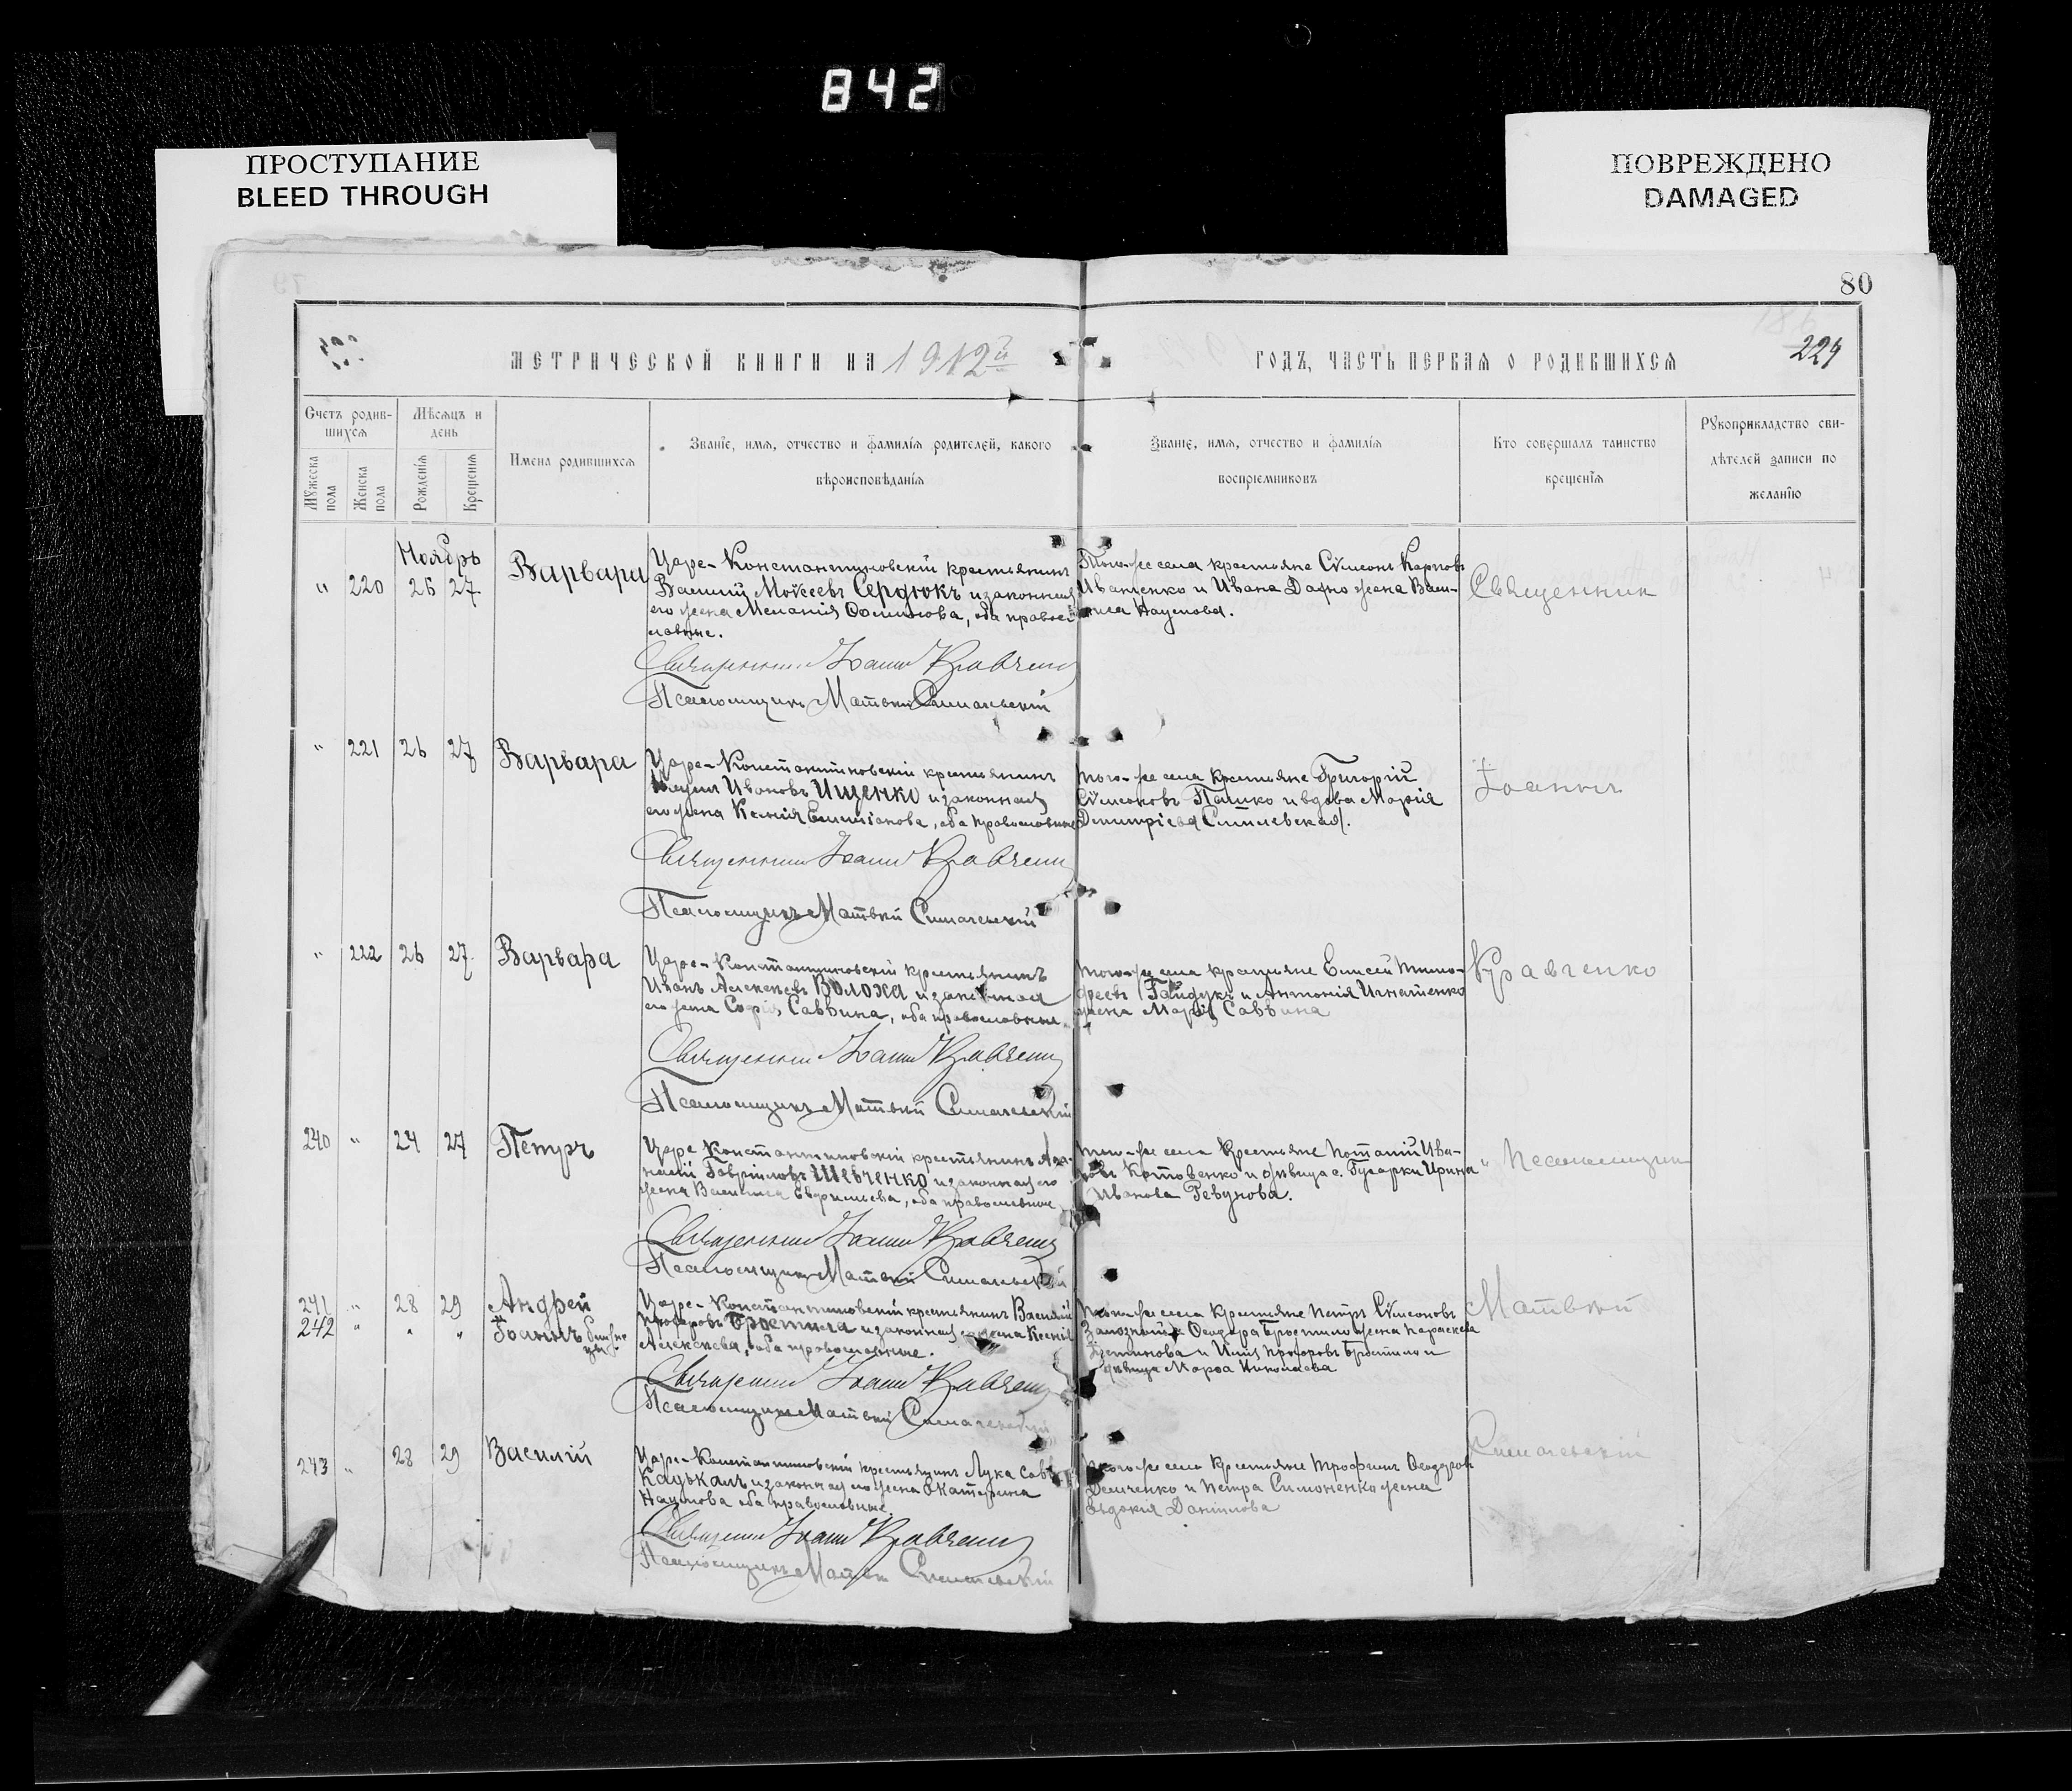 842
ПРОСТУПАНИЕ
BLEED THROUGH
ПОВРЕЖДЕНО
DAMAGED
80
МЕТРИЧЕСКОЙ КНИГИ НА 1912й
ГОДЪ, ЧАСТЬ ПЕРВАЯ О РОДИВШИХСЯ
229
Счетъ родив-
шихся
Мѣсяцъ и
день
Мужеска
пола
Женска
пола
Рожденія
Крещенія
Имена родившихся
Званіе, имя, отчество и фамилія родителей, какого
вѣроисповѣданія
Званіе, имя, отчество и фамилія
воспріемниковъ
Кто совершалъ таинство
крещенія
Рукоприкладство сви-
дѣтелей записи по
желанію
Ноябрь
" 220 26 27 Варвара
Царе-Константиновскій крестьянинъ
Василій Моѵсеевъ Сердюкъ и законная
его жена Меланія, оба правос-
лавные.
Священникъ Іоаннъ Кравченко
Псаломщикъ Матвѣй Сималевскій
Того-же села крестьяне Сѵмеонъ Карповъ
Иващенко и Ивана Дахно жена Васи-
лиса Наумова.
Священник
" 221 26 27 Варвара
Царе-Константиновскій крестьянинъ
Ивановъ Ищенко и законная
его жена Ксенія Емиліанова, оба православные
Священникъ Іоаннъ Кравченко
Псаломщикъ Матвѣй Сималевскій
того-же села крестьяне Григорій
Сѵмеоновъ Пашко и вдова Марія
Димитріева.
Іоаннъ
" 222 26 27 Варвара
Царе-Константиновскій крестьянинъ
Иванъ Алексѣевъ Волоха и законная
его жена Софія Саввина, оба православные.
Священникъ Іоаннъ Кравченко
Псаломщикъ Матвѣй Сималевскій
того-же села крестьяне Елисей Тимо-
феевъ Гайдукъ и Антонія Игнатенко
жена Марія Саввина
Кравченко
240 " 24 27 Петръ
Царе Константиновскій крестьянинъ Афа-
насій Гавріиловъ Шевченко и законная его
жена Василиса, оба православные
Священникъ Іоаннъ Кравченко
Псаломщикъ Матвѣй Сималевскій
того-же села крестьяне Потапій Ива-
новъ Котовенко и дѣвица с. Гусарки Ирина
Иванова Ревунова.
и Псаломщик
241 " 28 29 Андрей
242 " " " Іоаннъ близне
цы
Царе-Константиновскій крестьянинъ Василій
Прохоровъ Бростила и законная жена Ксенія
Алексѣева, оба православные.
Священникъ Іоаннъ Кравченко
Псаломщикъ Матвѣй Сималевскій
того-же села крестьяне Петръ Сѵмеоновъ
и Ѳеодора Бростило жена Параскева
и Прохоровъ Бростило и
дѣвица Марфа Николаева
Матвѣй
243 " 28 29 Василій
Царе-Константиновскій крестьянинъ Лука
и законная его жена Екатерина
Наумова оба православные
Священникъ Іоаннъ Кравченко
Псаломщикъ Матвѣй Сималевскій
того-же села крестьяне Трофимъ Ѳеодоровъ
Демченко и Петра Симоненко жена
Евдокія Даніилова
Сималевскій